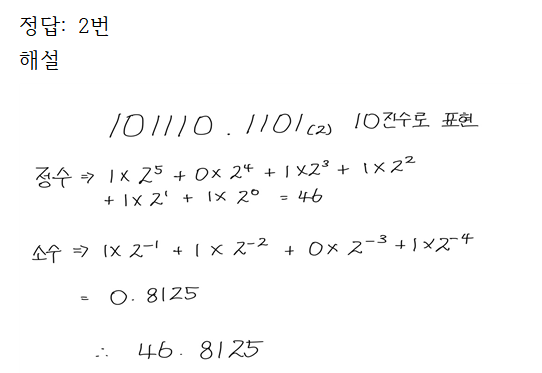 정답: 2번
해설
101110.1101(2) 10진수로 표현
정수 ⇒ 1×2⁵ + 0×2⁴ + 1×2³ + 1×2²
+ 1×2¹ + 1×2⁰ = 46
소수 ⇒ 1×2⁻¹ + 1×2⁻² + 0×2⁻³ + 1×2⁻⁴
= 0.8125
∴ 46.8125